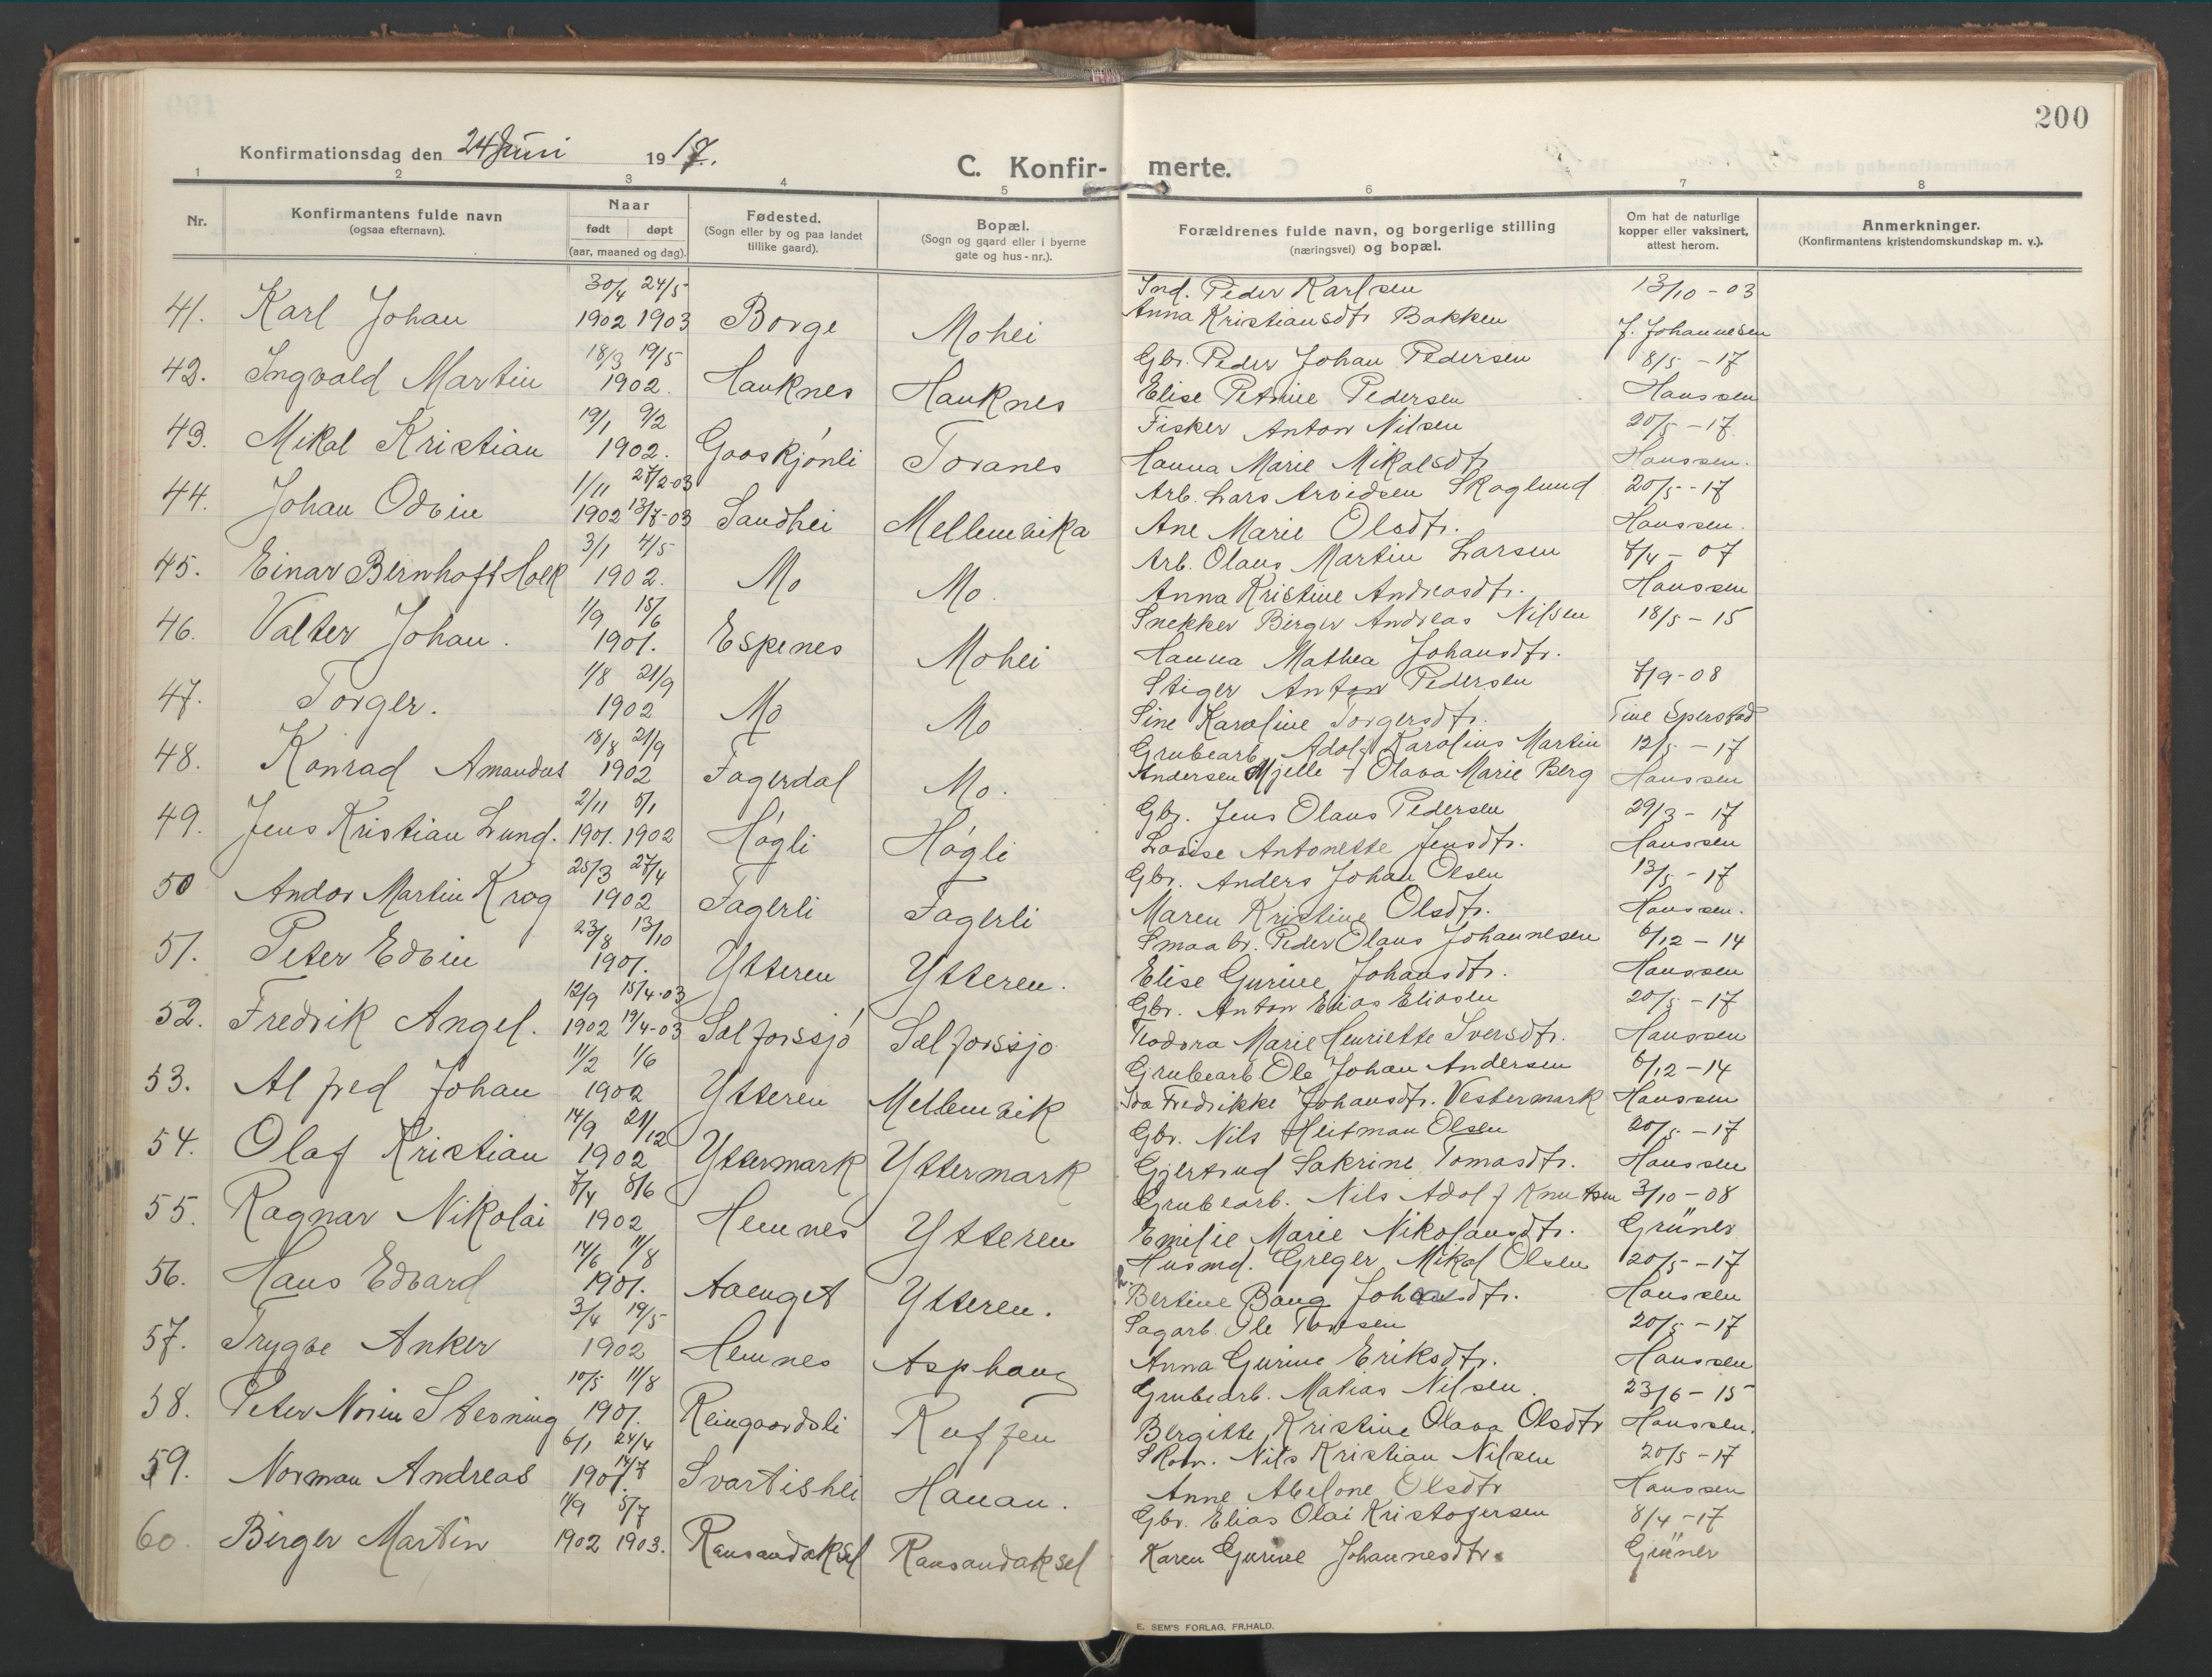 200
Konfirmationsdag den 24 Juni 1917.
C. Konfir- merte.
1 2 3 4 5 6 7 8
Nr.
Konfirmantens fulde navn
(ogsaa efternavn).
Naar
født døpt
(aar, maaned og dag).
Fødested.
(Sogn eller by og paa landet
tillike gaard).
Bopæl.
(Sogn og gaard eller i byerne
gate og hus-nr.).
Forældrenes fulde navn, og borgerlige stilling
(næringsvei) og bopæl.
Om hat de naturlige
kopper eller vaksinert,
attest herom.
Anmerkninger.
(Konfirmantens kristendomskundskap m. v.).
30/4 24/5 Ind. Peder Karlsen 13/10 - 03
41. Karl Johan 1902 1903 Borge Mohei Anna Kristiansdtr Bakken J. Johannesen
18/3 19/5 Gbr. Peder Johan Pedersen 8/5 - 17
42. Ingvald Martin 1902. Hauknes Hauknes Elise Petrine Pedersen Hanssen
19/1 9/2 Fisker Anton Nilsen 20/5 - 17
43. Mikal Kristian 1902. Gaaskjónli Toranes Hanna Marie Mikalsdtr Hanssen.
1/11 27/2-03 Arb. Lars Arvidsen Skoglund 20/5 - 17
44. Johan Odvin 1902 13/7-03 Sandhei Mellemvika Ane Marie Olsdtr. Hanssen.
3/1 4/5 Arb. Olaus Martin Larsen 7/4 - 07
45. Einar Bernhoft Hoek 1902. Mo Mo. Anna Kristine Andreasdtr. Hanssen
1/9 15/6 Snekker Birger Andreas Nilsen 18/5 - 15
46. Valter Johan. 1901. Espenes Mohei Hanna Mathea Johansdtr.
1/8 21/9 Stiger Anton Pedersen 7/9 - 08
47. Torger. 1902 Mo Mo Sine Karoline Torgersdtr. Tine
18/8 21/9 Grubearb. Adolf Karolius Martin 12/5 - 17
48. Konrad Amandus 1902 Fagerdal Mo. Andersen Mjelle + Olava Marie Berg Hanssen
2/11 5/1 Gbr. Jens Olaus Pedersen 29/3 - 17
49. Jens Kristian Lund. 1901. 1902 Hógli Hógli Lovise Antonette Jensdtr. Hanssen
25/3 27/4 Gbr. Anders Johan Olsen 13/5 - 17
50 Andor Martin Krog 1902 Fagerli Fagerli Maren Kristine Olsdtr. Hanssen.
23/8 13/10 Smaabr. Peder Olaus Johannesen 6/12 - 14
51. Peter Edvin 1901. Ytteren Ytteren. Elise Gurine Johansdtr. Hanssen
12/9 15/4-03 Gbr. Anton Elias Eliasen 20/5 - 17
52. Fredrik Angel. 1902 19/4-03 Sælforssjó Sælforssjo Teodora Marie Henriette Iversdtr. Hanssen
11/2 1/6 Grubearb Ole Johan Andersen 6/12 - 14
53. Alfred Johan 1902 Ytteren Mellemvik Ida Fredrikke Johansdtr. Vestermark Hanssen
14/9 21/12 Gbr. Nils Heitman Olsen 20/5 - 17
54. Olaf Kristian 1902 Yttermark Yttermark Gjertrud Sakrine Tomasdtr. Hanssen
7/4 8/6 Grubearb. Nils Adolf Knutsen 3/10 - 08
55. Ragnar Nikolai 1902 Hemnes Ytteren Emilie Marie Nikolausdtr. Grüner
14/6 11/8 Husmd. Greger Mikal Olsen 20/5 - 17
56. Hans Edvard 1901. Aaenget Ytteren. Bertine Bang Johansdtr. Hanssen
3/4 19/5 Sagarb. Ole Tørsen 20/5 - 17
57. Trygve Anker 1902 Hemnes Asphaug Anna Gurine Eriksdtr. Hanssen
10/5 11/8 Grubearb. Matias Nilsen. 23/6 - 15
58. Peter Norin Stesning 1901. Reingaardsli Ruffen Bergitte Kristine Olava Olsdtr Hanssen.
6/1 24/4 Skom. Nils Kristian Nilsen 20/5 - 17
59. Norman Andreas 1901. 14/7 Svartishei Hauan. Anne Abelone Olsdtr Hanssen
11/9 5/7 Gbr. Elias Olai Kristofersen 8/4 - 17
60. Birger Martin 1902 1903. Ransandaksel Ransandaksel Karen Gurine Johannesdtr. Grüner
E. SEM'S FORLAG, FR.HALD.